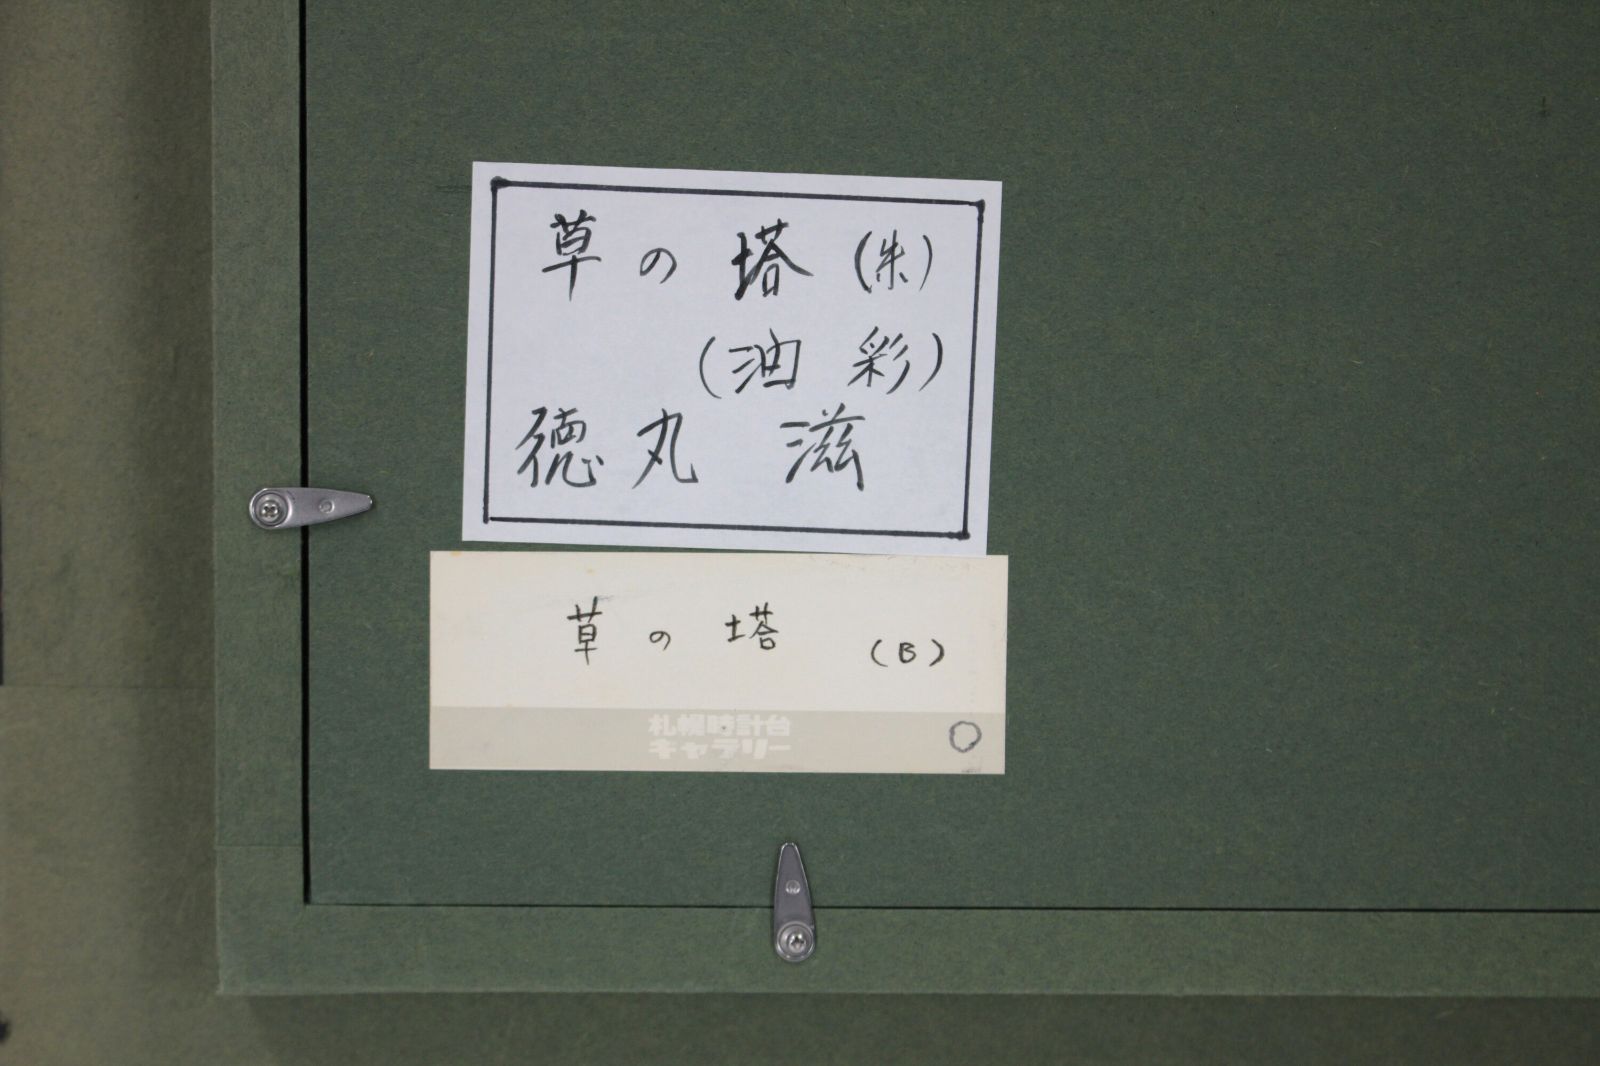 草の塔(朱)
(油彩)
徳丸 滋
草の塔 (B)
札幌時計台
ギャラリー